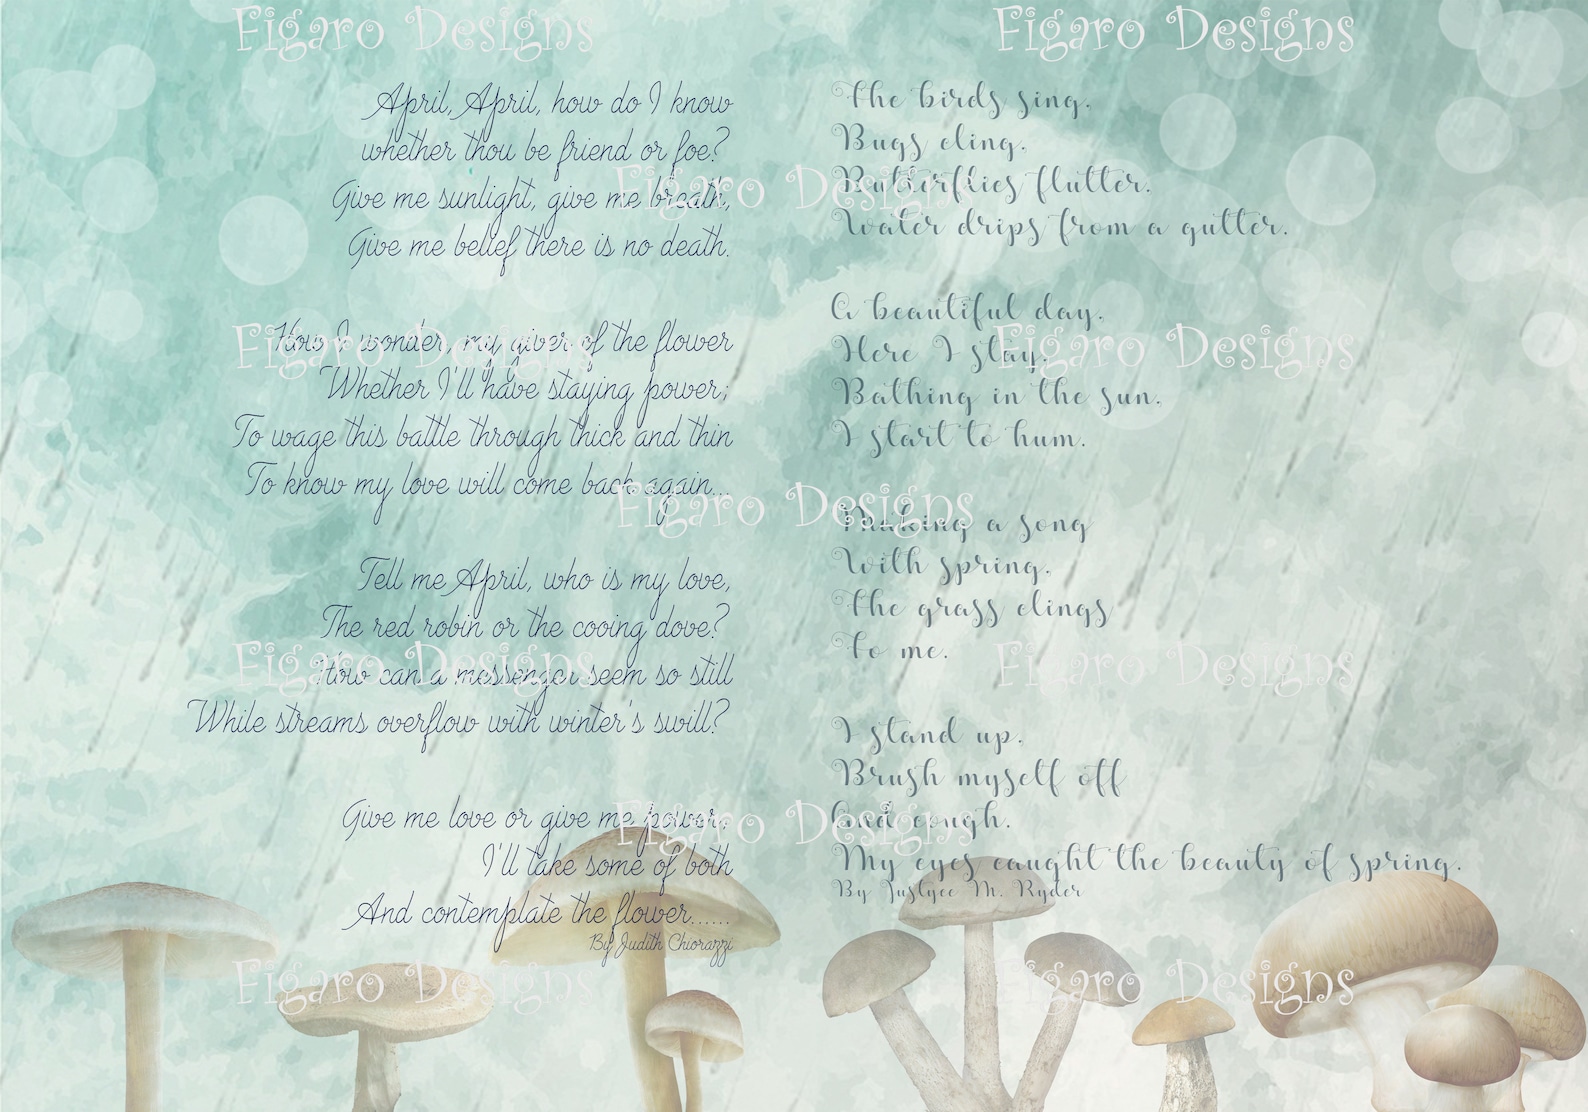 Figaro Designs
Figaro Designs
April, April, how do I know
whether thou be friend or foe?
Give me sunlight, give me breath,
Give me belief there is no death.
How I wonder, my giver of the flower
Whether I'll have staying power;
To wage this battle through thick and thin
To know my love will come back again...
Tell me April, who is my love,
The red robin or the cooing dove?
How can a messenger seem so still
While streams overflow with winter's swill?
Give me love or give me power,
I'll take some of both
And contemplate the flower......
By Judith Chiorazzi
The birds sing.
Bugs cling.
Butterflies flutter.
Water drips from a gutter.
A beautiful day.
Here I stay.
Bathing in the sun.
I start to hum.
Making a song
With spring.
The grass clings
To me.
I stand up.
Brush myself off
And cough.
My eyes caught the beauty of spring.
By Juslyce M. Ryder
Figaro Designs
Figaro Designs
Figaro Designs
Figaro Designs
Figaro Designs
Figaro Designs
Figaro Designs
Figaro Designs
Figaro Designs